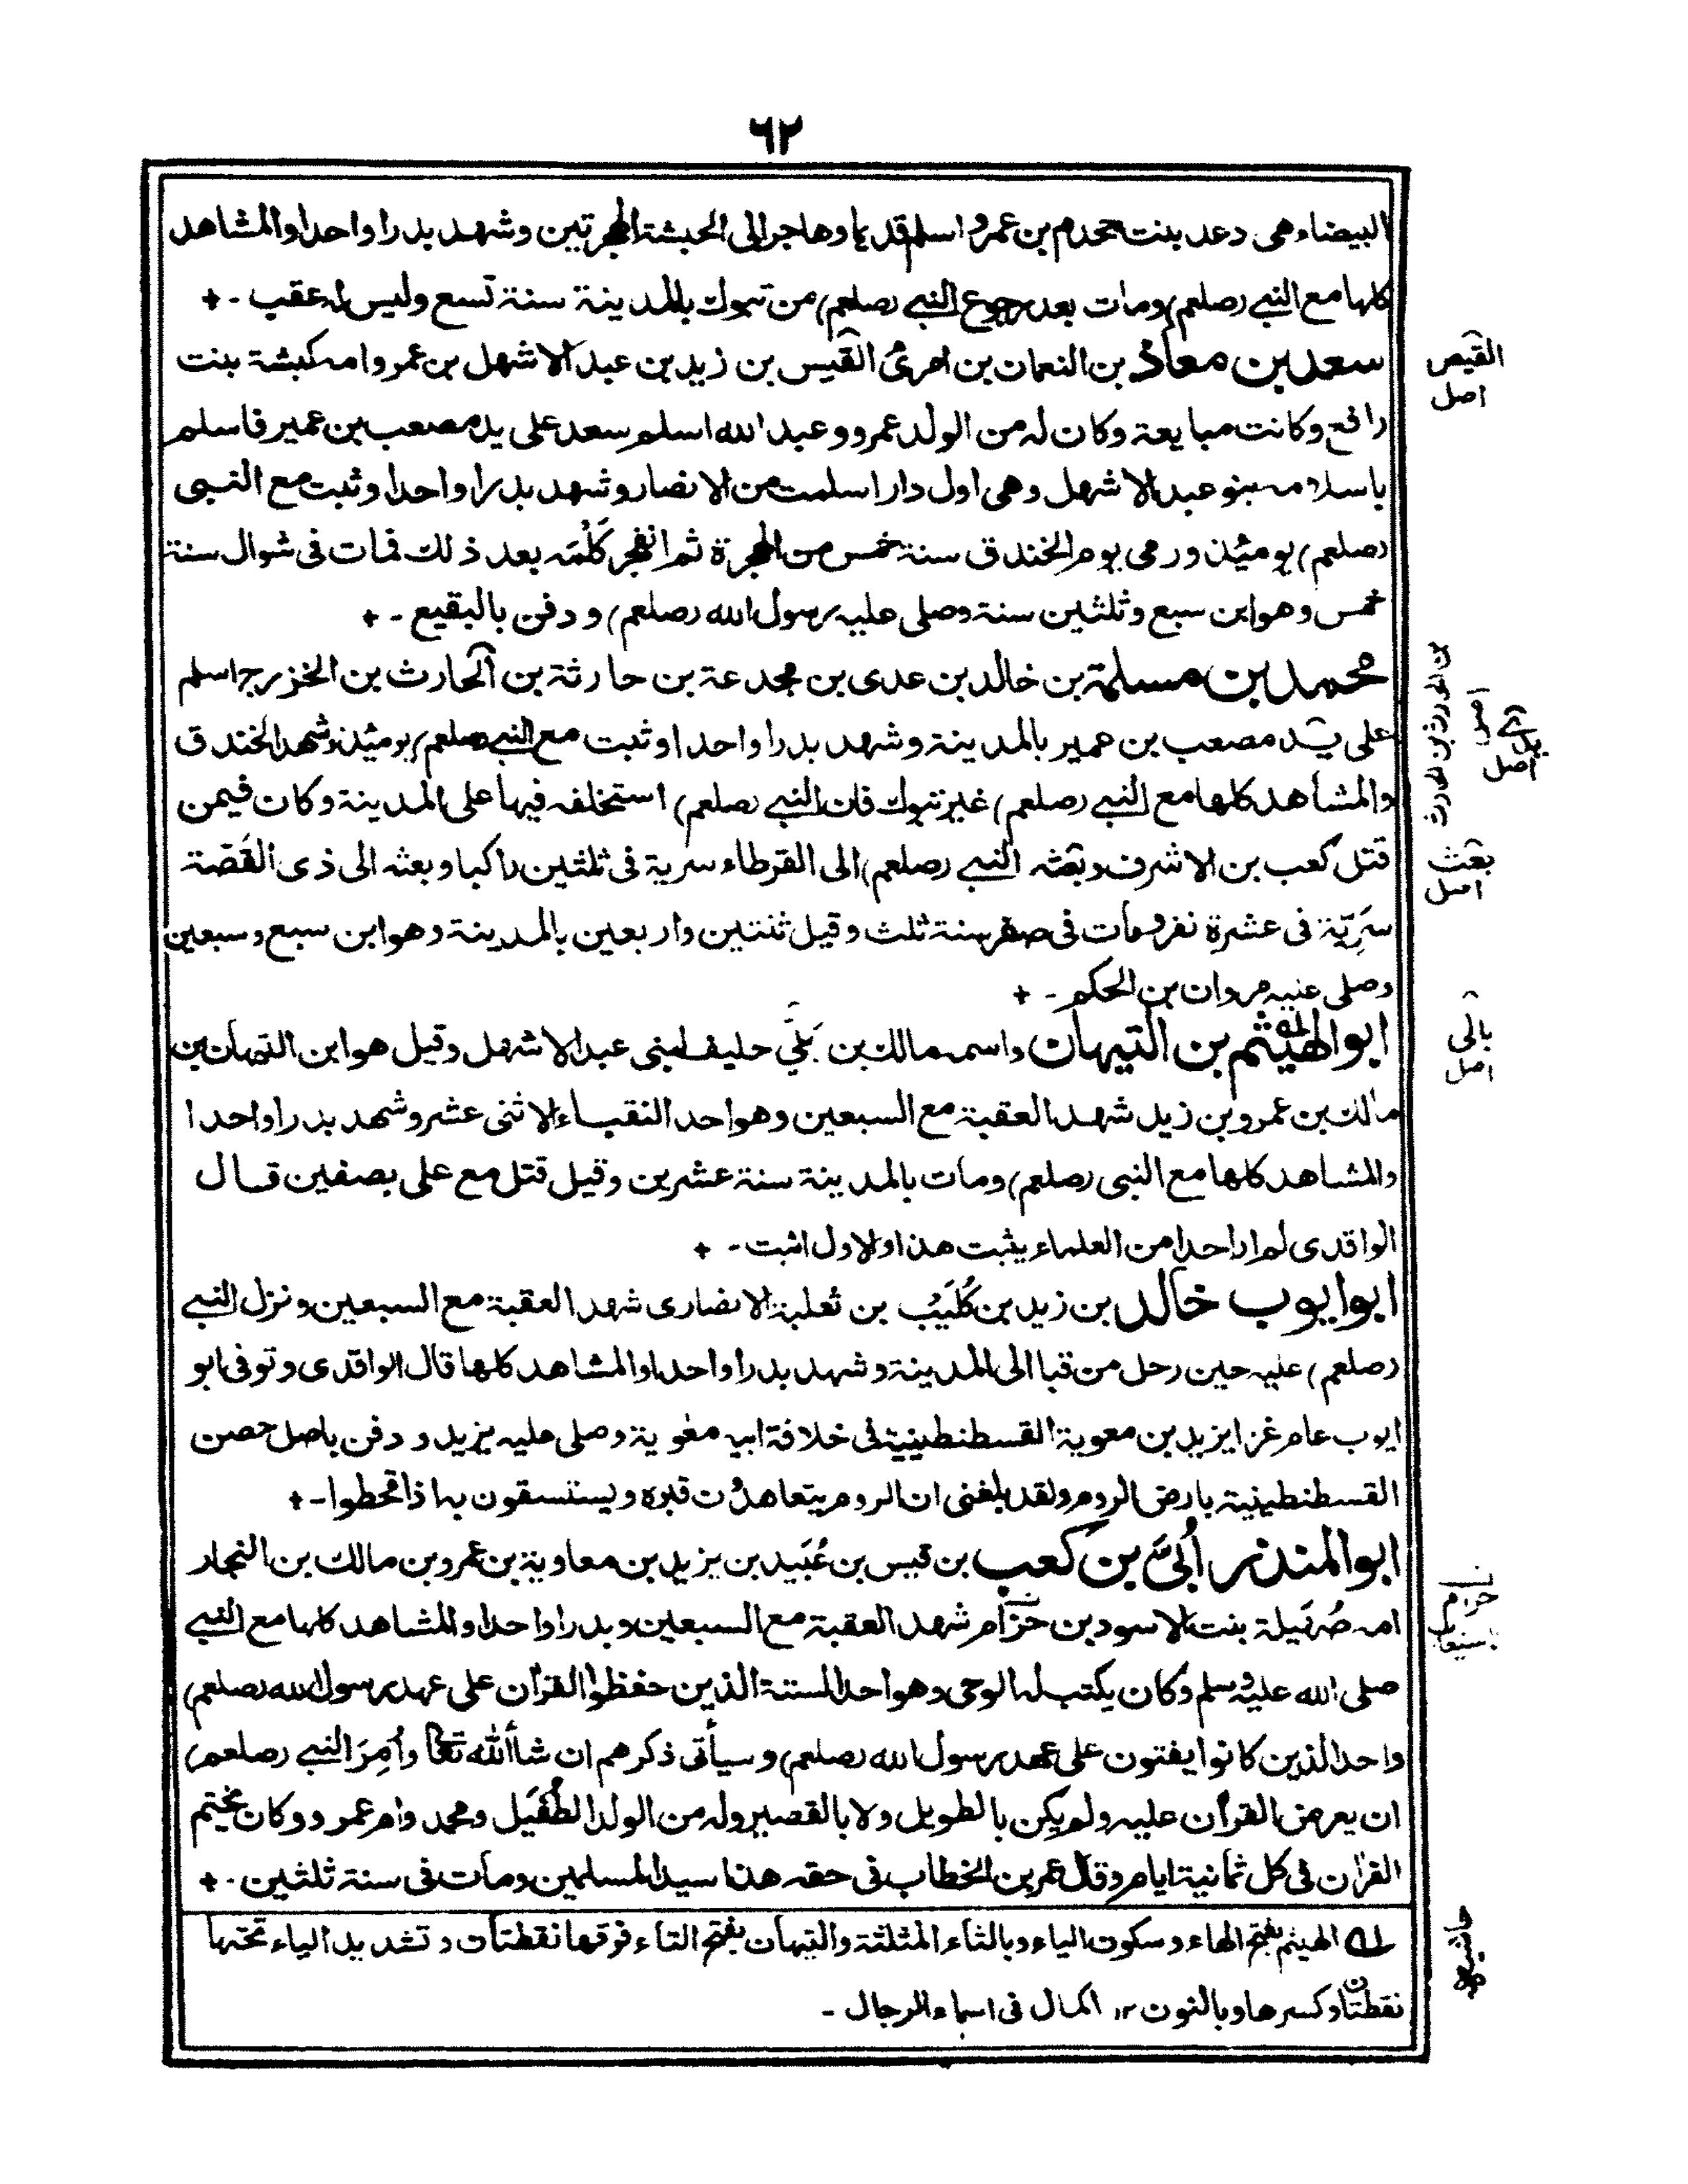 ٦٢
البيضاء هى دعد بنت جحدم بن عمرو اسلم قديما وهاجر الى الحبشة الهجرتين وشهد بدرا واحدا والمشاهد
كلها مع النبے (صلعم) ومات بعد رجوع النبے (صلعم) من تبوك بالمدينة سنة تسع وليس له عقب -+
سعد بن معاذ بن النعمان بن امرئ القيس بن زيد بن عبد الاشهل بن عمرو امه كبشة بنت
رافع وكانت مبايعة وكان له من الولد عمرو وعبد الله اسلم سعد على يد مصعب بن عمير فاسلم
باسلامه بنو عبد الاشهل وهى اول دار اسلمت من الانصار وشهد بدرا واحدا وثبت مع النبى
(صلعم) يومئذ ورمى يوم الخندق سنة خمس من الهجرة ثم انفجر كَلْمُه بعد ذلك فمات فى شوال سنة
خمس وهو ابن سبع وثلثين سنة وصلى عليه رسول الله (صلعم) ودفن بالبقيع -+
محمد بن مسلمة بن خالد بن عدى بن مجدعة بن حارثة بن الحارث بن الخزرج اسلم
على يد مصعب بن عمير بالمدينة وشهد بدرا واحدا وثبت مع النبے (صلعم) يومئذ وشهد الخندق
والمشاهد كلها مع النبے (صلعم) غير تبوك فان النبے (صلعم) استخلفه فيها على المدينة وكان فيمن
قتل كعب بن الاشرف وبعثه النبے (صلعم) الى القرطاء سرية فى ثلثين راكبا وبعثه الى ذى القَصّة
سَرِيّة فى عشرة نفر ومات فى صفر سنة ثلث وقيل ثنتين واربعين بالمدينة وهو ابن سبع وسبعين
وصلى عليه مروان بن الحكم -+
ابو الهيثم بن التيهان واسمه مالك بن بَلّي حليف لبنى عبد الاشهل وقيل هو ابن التيهان بن
مالك بن عمرو بن زيد شهد العقبة مع السبعين وهو احد النقباء الاثنى عشر وشهد بدرا واحدا
والمشاهد كلها مع النبى (صلعم) ومات بالمدينة سنة عشرين وقيل قتل مع على بصفين قال
الواقدى لم ار احدا من العلماء يثبت هذا والاول اثبت -+
ابو ايوب خالد بن زيد بن كُلَيْب بن ثعلبة الانصارى شهد العقبة مع السبعين ونزل النبے
(صلعم) عليه حين رحل من قبا الى المدينة وشهد بدرا واحدا والمشاهد كلها قال الواقدى وتوفى ابو
ايوب عام غزا يزيد بن معوية القسطنطينية فى خلافة ابيه معوية وصلى عليه يزيد ودفن باصل حصن
القسطنطينية بارض الروم ولقد بلغنى ان الروم يتعاهدون قبره ويستسقون به اذا قحطوا -+
ابو المنذر اُبَىّ بن كعب بن قيس بن عُبَيد بن يزيد بن معاوية بن عمرو بن مالك بن النجار
امه صُهَيلة بنت الاسود بن حَزام شهد العقبة مع السبعين وبدرا واحدا والمشاهد كلها مع النبے
صلى الله عليه وسلم وكان يكتب له الوحى وهو احد الستة الذين حفظوا القرآن على عهد رسول الله (صلعم)
واحد الذين كانوا يفتون على عهد رسول الله (صلعم) وسيأتى ذكرهم ان شاء الله تعالى واُمِرَ النبے (صلعم)
ان يعرض القرآن عليه ولم يكن بالطويل ولا بالقصير وله من الولد الطُفَيل ومحمد وام عمرو وكان يختم
القرآن فى كل ثمانية ايام وقال عمر بن الخطاب فى حقه هذا سيد المسلمين ومات فى سنة ثلثين -+
له الهيثم بفتح الهاء وسكون الياء وبالثاء المثلثة والتيهان بفتح التاء فوقها نقطتان وتشديد الياء تحتها
نقطتان وكسرها وبالنون ١٢ اكمال فى اسماء الرجال -
القيص
اصل
بن الحارث بن الحارث
اصل
يدي
اصل
بعث
اصل
بالى
اصل
حرام
استيعاب
حاشيه